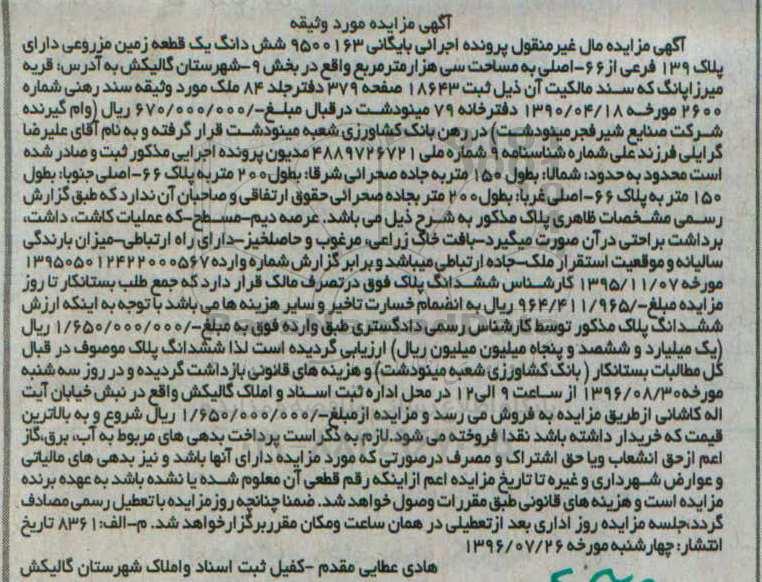 آگهی مزایده مورد وثیقه
آگهی مزایده مال غیرمنقول پرونده اجرائی بایگانی ۹۵۰۰۱۶۳ شش دانگ یک قطعه زمین مزروعی دارای
پلاک ۱۳۹ فرعی از۶۶-اصلی به مساحت سی هزارمترمربع واقع در بخش ۹-شهرستان گالیکش به آدرس: قریه
میرزاپانگ که سند مالکیت آن ذیل ثبت ۱۸۶۴۳ صفحه ۳۷۹ دفترجلد ۸۴ ملک مورد وثیقه سند رهنی شماره
۲۶۰۰ مورخه ۱۳۹۰/۰۴/۱۸ دفترخانه ۷۹ مینودشت درقبال مبلغ-/۶۷۰/۰۰۰/۰۰۰ ریال (وام گیرنده
شرکت صنایع شیرفجرمینودشت) در رهن بانک کشاورزی شعبه مینودشت قرار گرفته و به نام آقای علیرضا
گرایلی فرزند علی شماره شناسنامه ۹ شماره ملی ۴۸۸۹۷۲۶۷۲۱ مدیون پرونده اجرایی مذکور ثبت و صادر شده
است محدود به حدود: شمالا: بطول ۱۵۰ متربه جاده صحرائی شرقا: بطول۲۰۰ متربه پلاک ۶۶-اصلی جنوبا: بطول
۱۵۰ متر به پلاک ۶۶-اصلی غربا: بطول۲۰۰ متر بجاده صحرائی حقوق ارتفاقی و صاحبان آن ندارد که طبق گزارش
رسمی مشخصات ظاهری پلاک مذکور به شرح ذیل می باشد. عرصه دیم-مسطح-که عملیات کاشت، داشت،
برداشت براحتی درآن صورت میگیرد-بافت خاک زراعی، مرغوب و حاصلخیز-دارای راه ارتباطی-میزان بارندگی
سالیانه و موقعیت استقرار ملک-جاده ارتباطی میباشد و برابر گزارش شماره وارده۱۳۹۵۰۵۰۱۲۴۲۲۰۰۰۵۶۷
مورخه ۱۳۹۵/۱۱/۰۷ کارشناس ششدانگ پلاک فوق درتصرف مالک قرار دارد که جمع طلب بستانکار تا روز
مزایده مبلغ-/۹۶۴/۴۱۱/۹۶۵ ریال به انضمام خسارت تاخیر و سایر هزینه ها می باشد با توجه به اینکه ارزش
ششدانگ پلاک مذکور توسط کارشناس رسمی دادگستری طبق وارده فوق به مبلغ-/۱/۶۵۰/۰۰۰/۰۰۰ ریال
(یک میلیارد و ششصد و پنجاه میلیون میلیون ریال) ارزیابی گردیده است لذا ششدانگ پلاک موصوف در قبال
کل مطالبات بستانکار ( بانک کشاورزی شعبه مینودشت) و هزینه های قانونی بازداشت گردیده و در روز سه شنبه
مورخه۱۳۹۶/۰۸/۳۰ از ساعت ۹ الی۱۲ در محل اداره ثبت اسناد و املاک گالیکش واقع در نبش خیابان آیت
اله کاشانی ازطریق مزایده به فروش می رسد و مزایده ازمبلغ-/۱/۶۵۰/۰۰۰/۰۰۰ ریال شروع و به بالاترین
قیمت که خریدار داشته باشد نقدا فروخته می شود.لازم به ذکراست پرداخت بدهی های مربوط به آب، برق،گاز
اعم ازحق انشعاب ویا حق اشتراک و مصرف درصورتی که مورد مزایده دارای آنها باشد و نیز بدهی های مالیاتی
و عوارض شهرداری و غیره تا تاریخ مزایده اعم ازاینکه رقم قطعی آن معلوم شده یا نشده باشد به عهده برنده
مزایده است و هزینه های قانونی طبق مقررات وصول خواهد شد. ضمنا چنانچه روز مزایده با تعطیل رسمی مصادف
گردد،جلسه مزایده روز اداری بعد ازتعطیلی در همان ساعت ومکان مقرربرگزارخواهد شد. م-الف:۸۳۶۱ تاریخ
انتشار: چهارشنبه مورخه ۱۳۹۶/۰۷/۲۶
هادی عطایی مقدم -کفیل ثبت اسناد واملاک شهرستان گالیکش